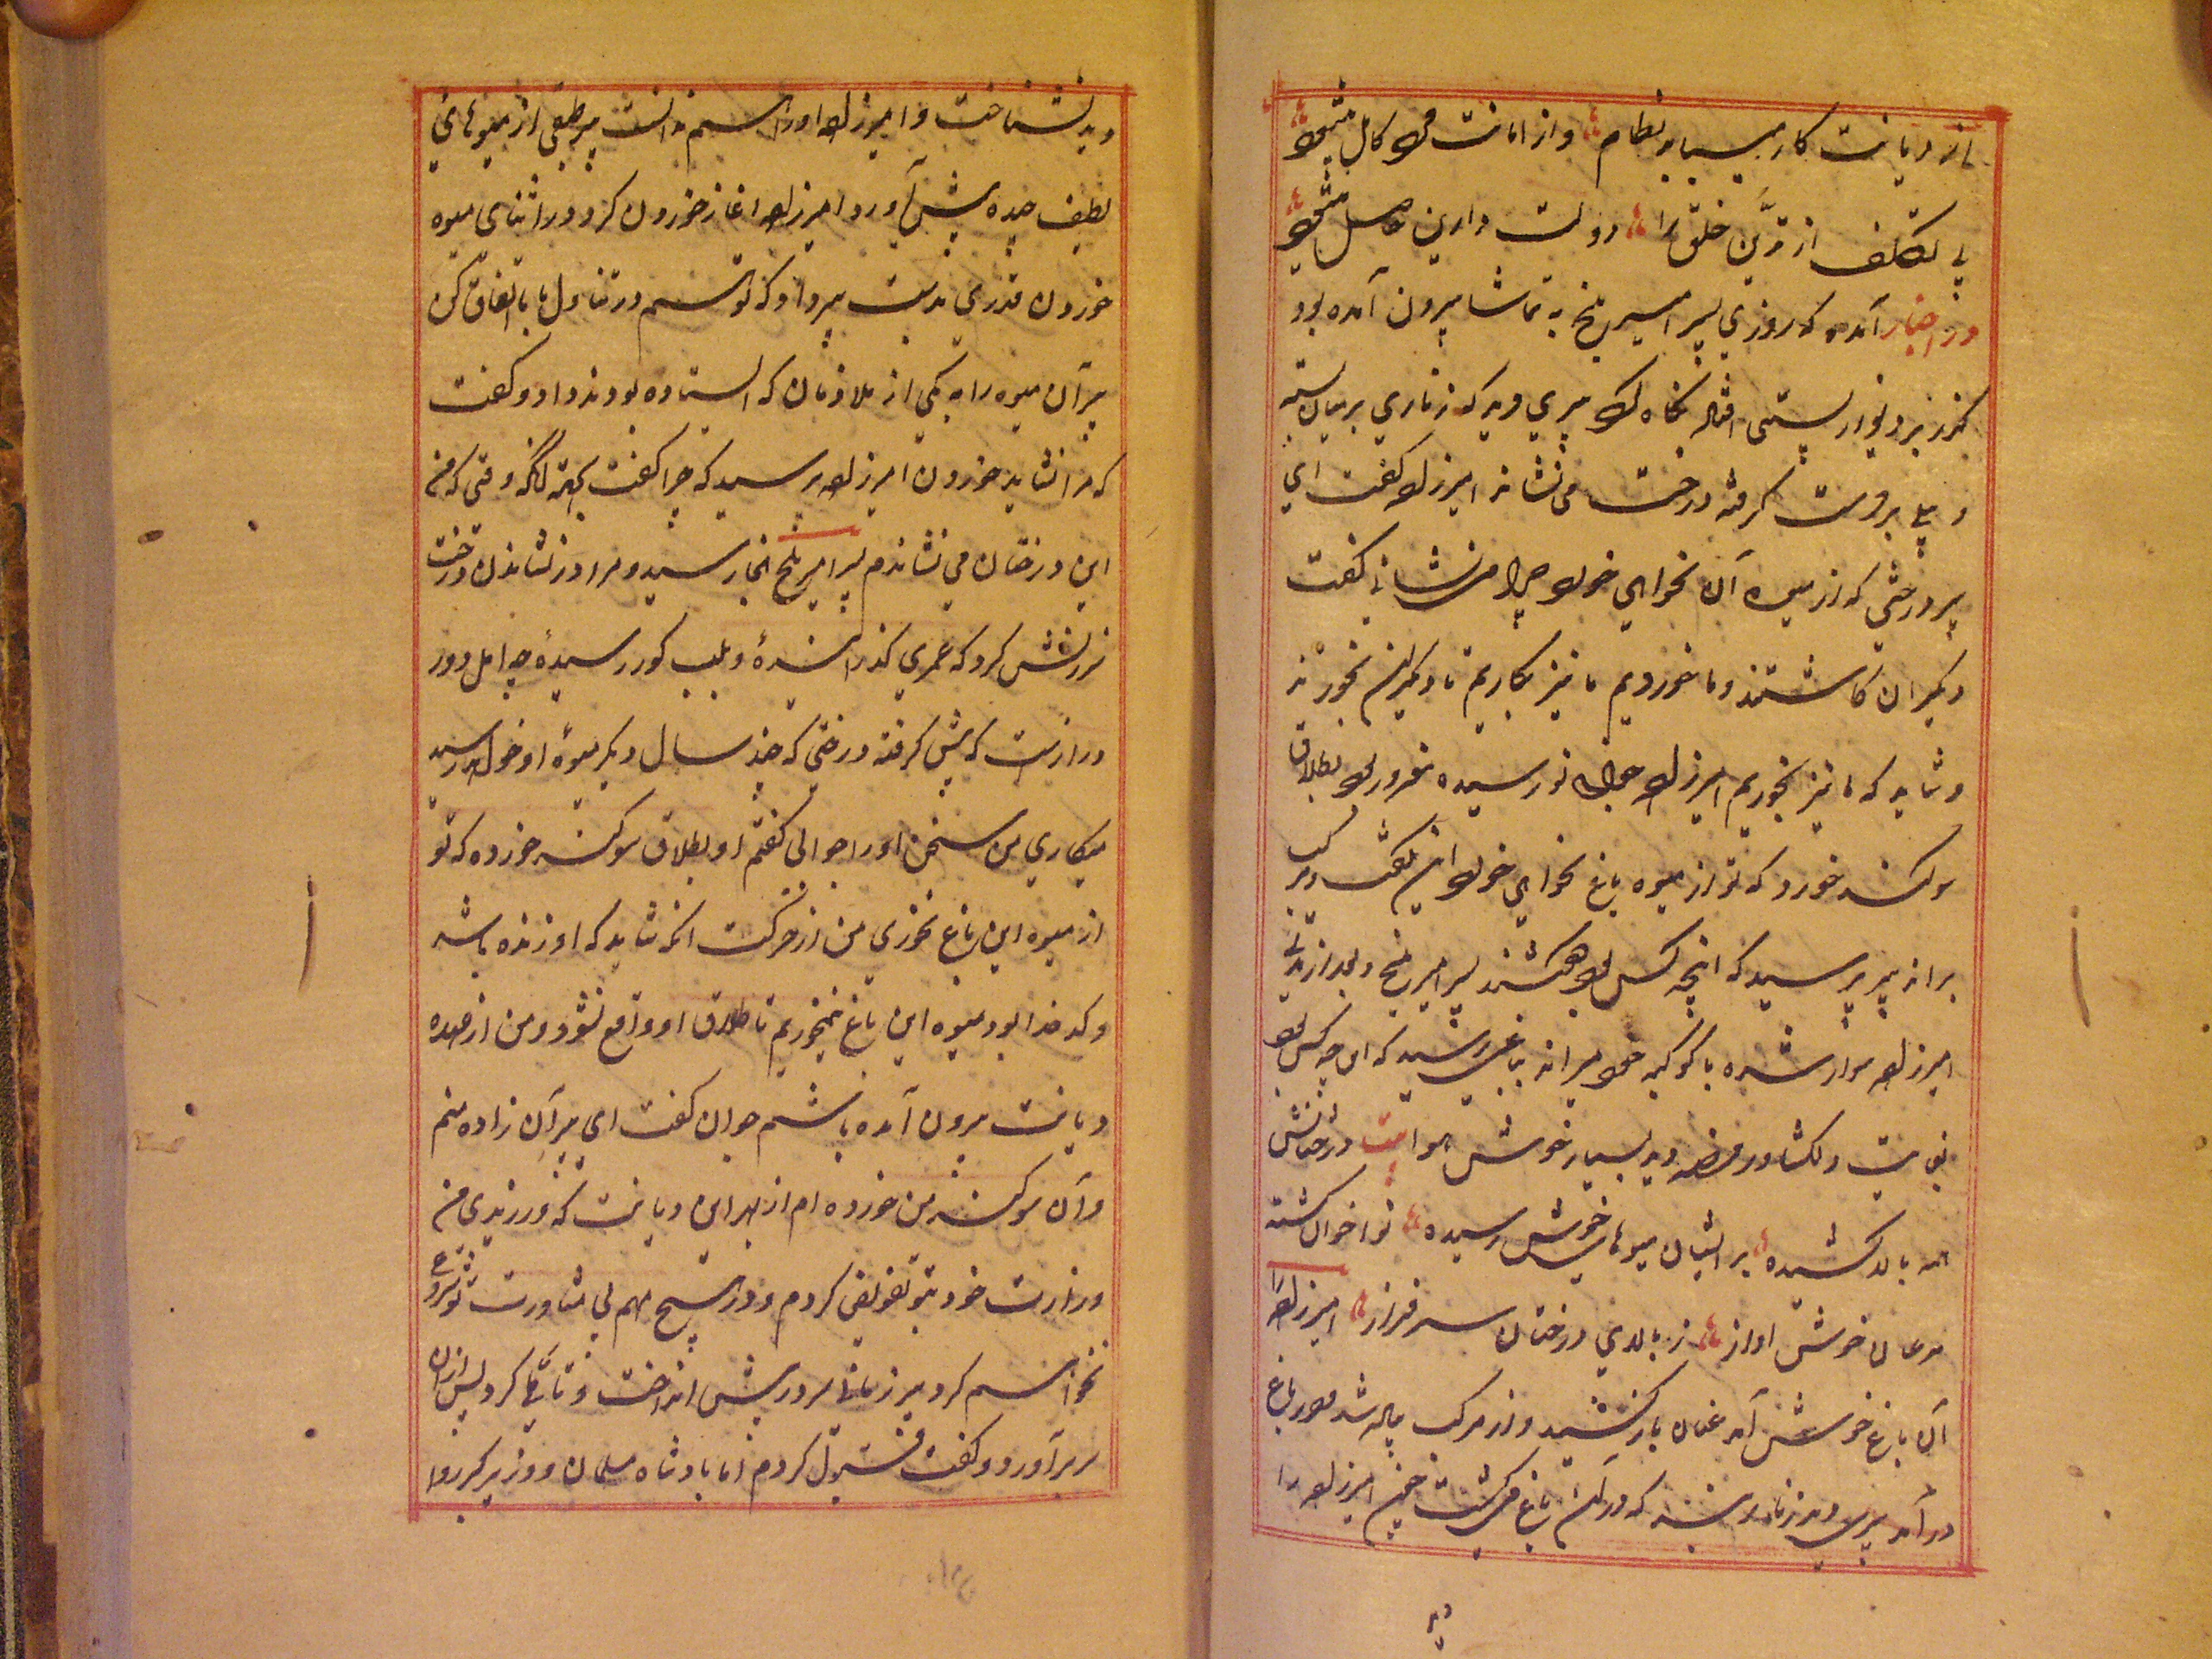 از دیانت کار می‌یابد نظام و از امانت مرد کامل میشود
بی تکلف از تدین خلق را دولت دارین حاصل میشود
در اخبار آمده که روزی پسر امیر بلخ به تماشا بیرون آمده بود
گذرش بر دیوار بستی افتاد نگاه کرد پیری دید که زناری بر میان بسته
و بیلی بر دست گرفته درخت می نشاند امیرزاده گفت ای
پیر درختی که از میوه آن نخواهی خورد چرا می نشانی گفت
دیگران کاشتند و ما خوردیم ما نیز بکاریم تا دیگران بخورند
و شاید که ما نیز بخوریم امیرزاده جوان نورسیده مغرور بود بطلاق
سوکند خورد که تو از میوه باغ نخواهی خورد این بگفت و مرکب
براند پیر پرسید که اینچه کس بود گفتند پسر امیر بلخ و بعد از مدتی
امیرزاده سوار شده با کوکبه خود میراند بباغی رسید که
بغایت دلکشا و روضه دید بسیار خوش هوا بیت درختانش
همه بالا کشیده بر ایشان میوهای خوش رسیده نواخوان گشته
مرغان خوش اواز ز بالای درختان سرفراز امیرزاده را
آن باغ خوش آمد عنان باز کشید و از مرکب پیاده شد و در باغ
درآمد پیری دید زنار بسته که در آن باغ می گشت امیرزاده را
دید نشناخت و امیرزاده او را هم ندانست پیر طبقی از میوهای
لطیف چیده پیش آورد امیرزاده اغاز خوردن کرد و در اثنای میوه
خوردن قدری بدست پیر داد که تو هم در تناول با ما اتفاق کن
پیر آن میوه را به یکی از ملازمان که ایستاده بودند داد و گفت
که مرا نشاید خوردن امیرزاده پرسید که چرا گفت بجهة آنکه وقتی که من
این درختان می نشاندم پسر امیر بلخ اینجا رسید و مرا در نشاندن درخت
سرزنش کرد که عمری گذرانیدهٔ و بلب گور رسیدهٔ چه امل دور
و درازست که پیش گرفتهٔ درختی که چند سال دیگر میوهٔ او خواهد رسید
میکاری من سخن او را جوابی گفتم او بطلاق سوکند خورده که تو
از میوه این باغ نخوری من از حرکت شاید که او زنده باشد
و کدخدا بود میوه این باغ نمیخوریم تا طلاق او واقع نشود و من از عهده
دیانت بیرون آمده باشم جوان گفت ای پیر آن زاده منم
و آن سوکند من خورده ام از بهر این دیانت که ورزیدی من
وزارت خود بتو تفویض کردم و در هیچ مهم بی مشاورت تو شروع
نخواهم کرد پیر زمانی سر در پیش انداخت و تأملی کرد پس از آن
سر برآورد و گفت قبول کردم اما پادشاه مسلمان و وزیر گبر روا